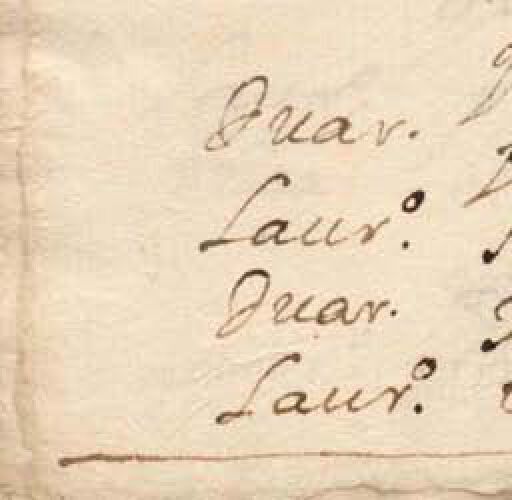 Duar.
Laur.º
Duar.
Laur.º